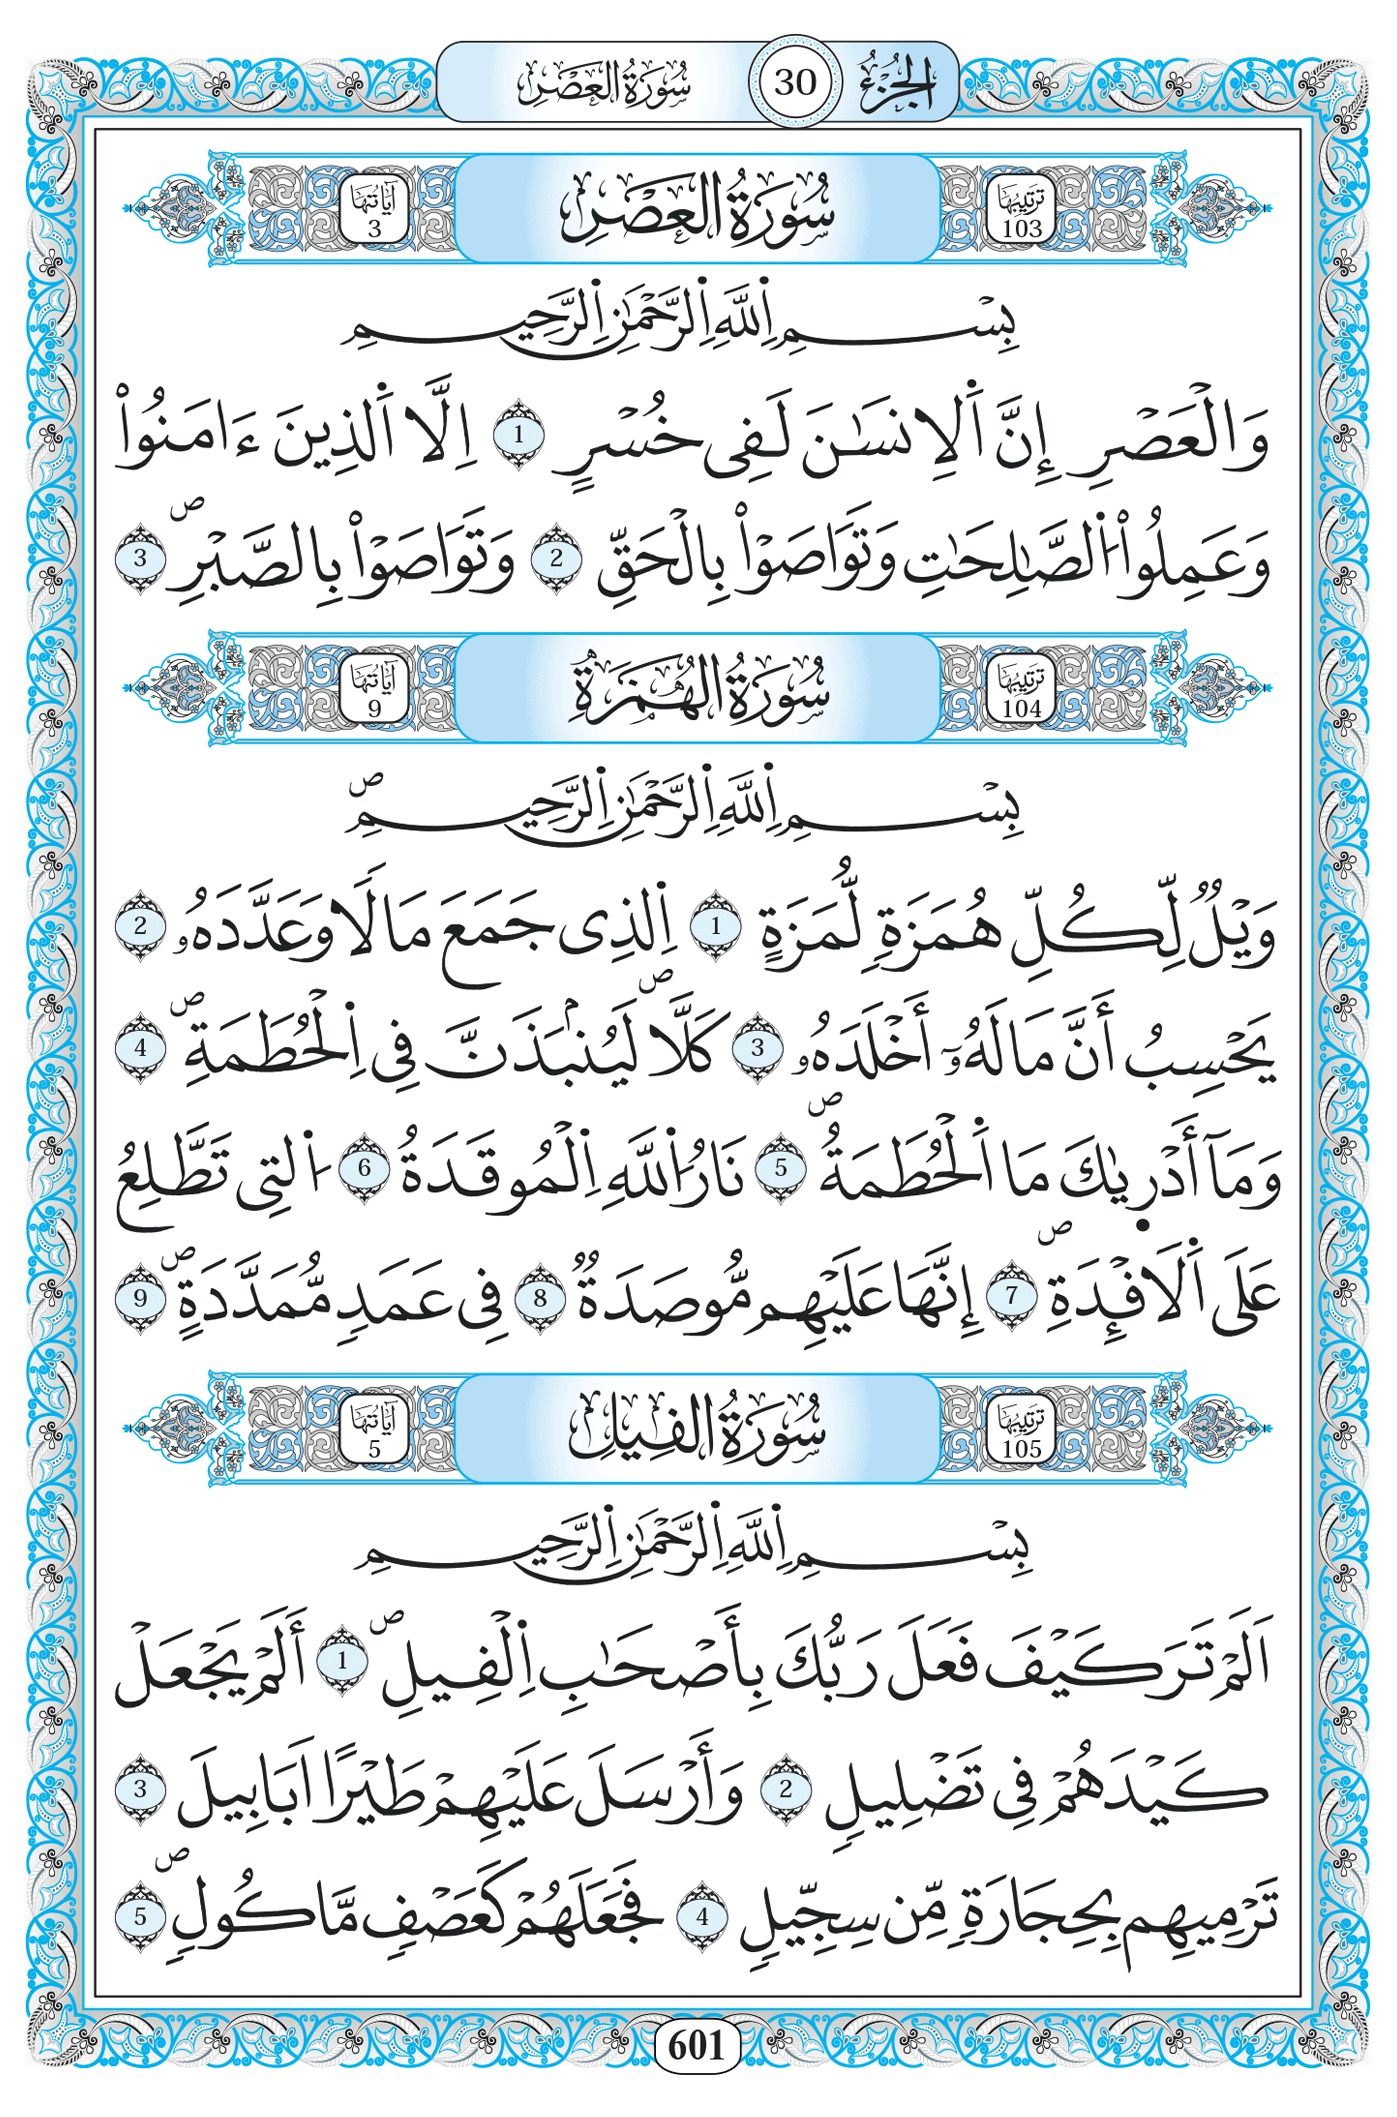 الجُزْءُ 30 سُورَةُ العَصْرِ
تَرْتِيبُهَا 103 سُورَةُ العَصْرِ آيَاتُهَا 3
بِسْمِ اِ۬للَّهِ اِ۬لرَّحْمَٰنِ اِ۬لرَّحِيمِ
وَالْعَصْرِ إِنَّ اَ۬لِانسَٰنَ لَفِى خُسْرٍ 1 اِلَّا اَ۬لذِينَ ءَامَنُواْ
وَعَمِلُواْ اُ۬لصَّٰلِحَٰتِ وَتَوَاصَوْاْ بِالْحَقِّ 2 وَتَوَاصَوْاْ بِالصَّبْرِ ص 3
تَرْتِيبُهَا 104 سُورَةُ الهُمَزَةِ آيَاتُهَا 9
بِسْمِ اِ۬للَّهِ اِ۬لرَّحْمَٰنِ اِ۬لرَّحِيمِ ص
وَيْلٌ لِّكُلِّ هُمَزَةٍ لُّمَزَةٍ 1 اِ۬لذِى جَمَعَ مَالًا وَعَدَّدَهُۥ 2
يَحْسِبُ أَنَّ مَالَهُۥٓ أَخْلَدَهُۥ 3 كَلَّا ص لَيُنۢبَذَنَّ فِى اِ۬لْحُطَمَةِ ص 4
وَمَآ أَدْر۪يٰكَ مَا اَ۬لْحُطَمَةُ ص 5 نَارُ اُ۬للَّهِ اِ۬لْمُوقَدَةُ 6 اُ۬لتِى تَطَّلِعُ
عَلَى اَ۬لَافْـِٕدَةِ ص 7 إِنَّهَا عَلَيْهِم مُّوصَدَةٌ 8 فِى عَمَدٍ مُّمَدَّدَةٍ ص 9
تَرْتِيبُهَا 105 سُورَةُ الفِيلِ آيَاتُهَا 5
بِسْمِ اِ۬للَّهِ اِ۬لرَّحْمَٰنِ اِ۬لرَّحِيمِ
اَلَمْ تَرَ كَيْفَ فَعَلَ رَبُّكَ بِأَصْحَٰبِ اِ۬لْفِيلِ ص 1 أَلَمْ يَجْعَلْ
كَيْدَهُمْ فِى تَضْلِيلٍ 2 وَأَرْسَلَ عَلَيْهِمْ طَيْرًا اَبَابِيلَ 3
تَرْمِيهِم بِحِجَارَةٍ مِّن سِجِّيلٍ 4 فَجَعَلَهُمْ كَعَصْفٍ مَّاكُولٍ ص 5
601